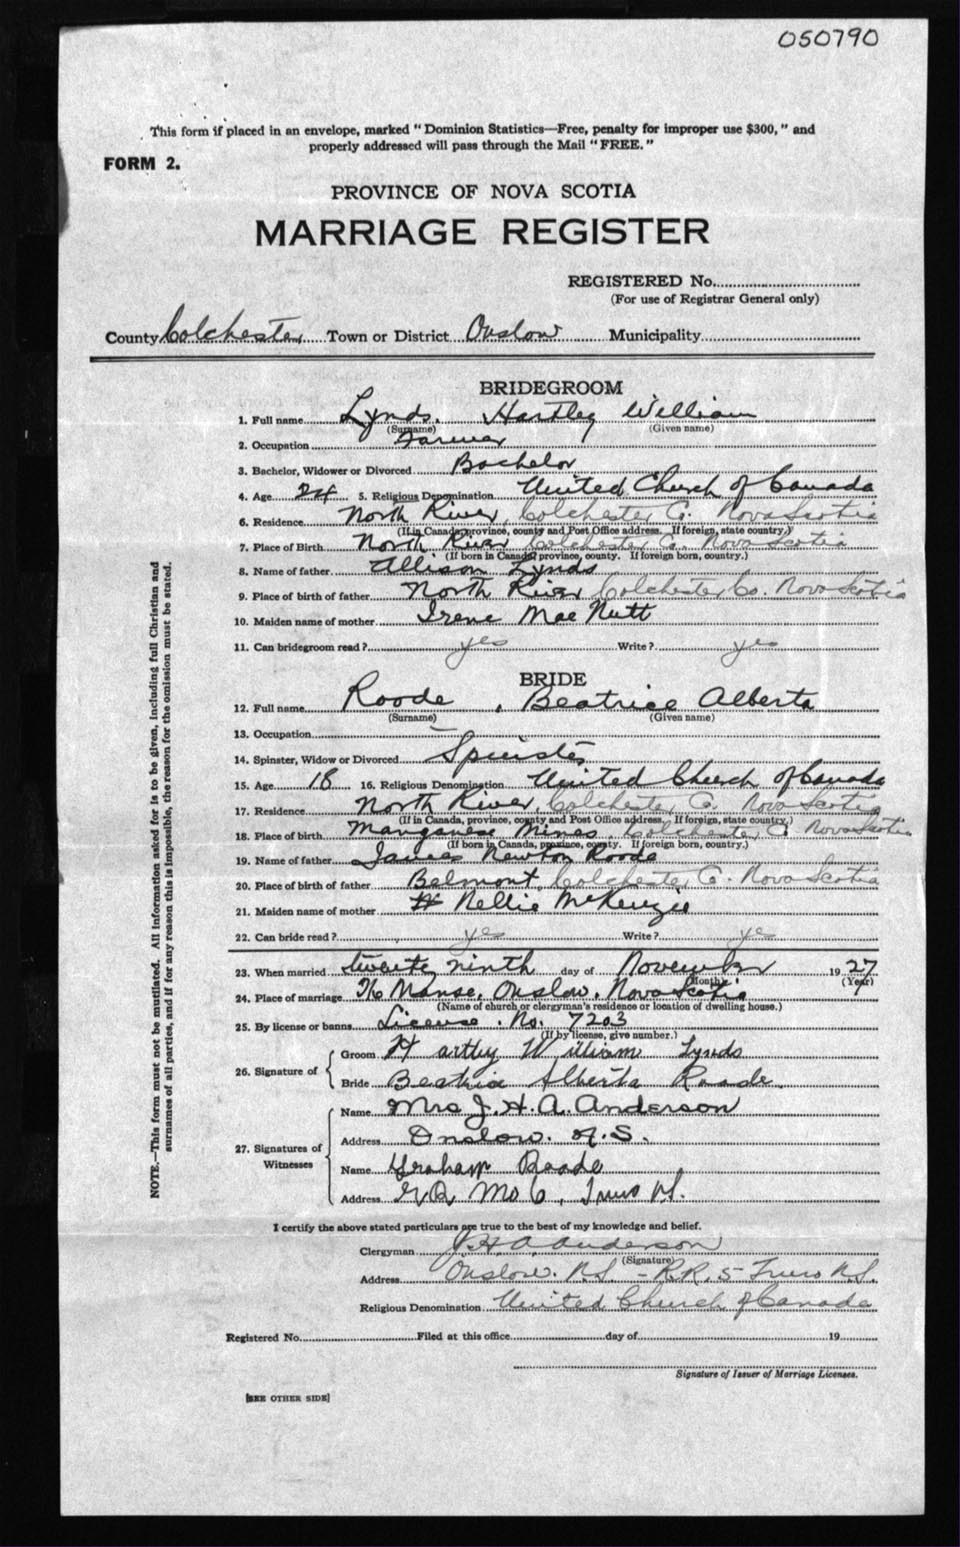 050790
This form if placed in an envelope, marked "Dominion Statistics—Free, penalty for improper use $300," and
properly addressed will pass through the Mail "FREE."
FORM 2.
PROVINCE OF NOVA SCOTIA
MARRIAGE REGISTER
REGISTERED No.
(For use of Registrar General only)
County Colchester Town or District Onslow Municipality
BRIDEGROOM
1. Full name Lynds, Hartley William
(Surname) (Given name)
2. Occupation Farmer
3. Bachelor, Widower or Divorced Bachelor
4. Age 24 5. Religious Denomination United Church of Canada
6. Residence North River, Colchester Co. Nova Scotia
(If in Canada, province, county and Post Office address. If foreign, state country.)
7. Place of Birth North River Colchester Co. Nova Scotia
(If born in Canada, province, county. If foreign born, country.)
8. Name of father Allison Lynds
9. Place of birth of father North River Colchester Co. Nova Scotia
10. Maiden name of mother Irene MacNutt
11. Can bridegroom read? yes Write? yes
BRIDE
12. Full name Roode, Beatrice Alberta
(Surname) (Given name)
13. Occupation —
14. Spinster, Widow or Divorced Spinster
15. Age 18 16. Religious Denomination United Church of Canada
17. Residence North River, Colchester Co. Nova Scotia
(If in Canada, province, county and Post Office address. If foreign, state country.)
18. Place of birth Manganese Mines, Colchester Co. Nova Scotia
(If born in Canada, province, county. If foreign born, country.)
19. Name of father James Newton Roode
20. Place of birth of father Belmont, Colchester Co. Nova Scotia
21. Maiden name of mother Nellie McKenzie
22. Can bride read? yes Write? yes
23. When married twenty ninth day of November 1927
(Month) (Year)
24. Place of marriage The Manse, Onslow, Nova Scotia
(Name of church or clergyman's residence or location of dwelling house.)
25. By license or banns License. No. 7203
(If by license, give number.)
26. Signature of
Groom Hartley William Lynds
Bride Beatrice Alberta Roode
27. Signatures of Witnesses
Name Mrs J. H. A. Anderson
Address Onslow. N.S.
Name Graham Roode
Address RR No 6, Truro N.S.
I certify the above stated particulars are true to the best of my knowledge and belief.
Clergyman J. H. A. Anderson
(Signature)
Address Onslow. N.S. - R.R. 5 Truro N.S.
Religious Denomination United Church of Canada
Registered No. Filed at this office day of 19
Signature of Issuer of Marriage Licenses.
[SEE OTHER SIDE]
NOTE.—This form must not be mutilated. All information asked for is to be given, including full Christian and
surnames of all parties, and if for any reason this is impossible, the reason for the omission must be stated.